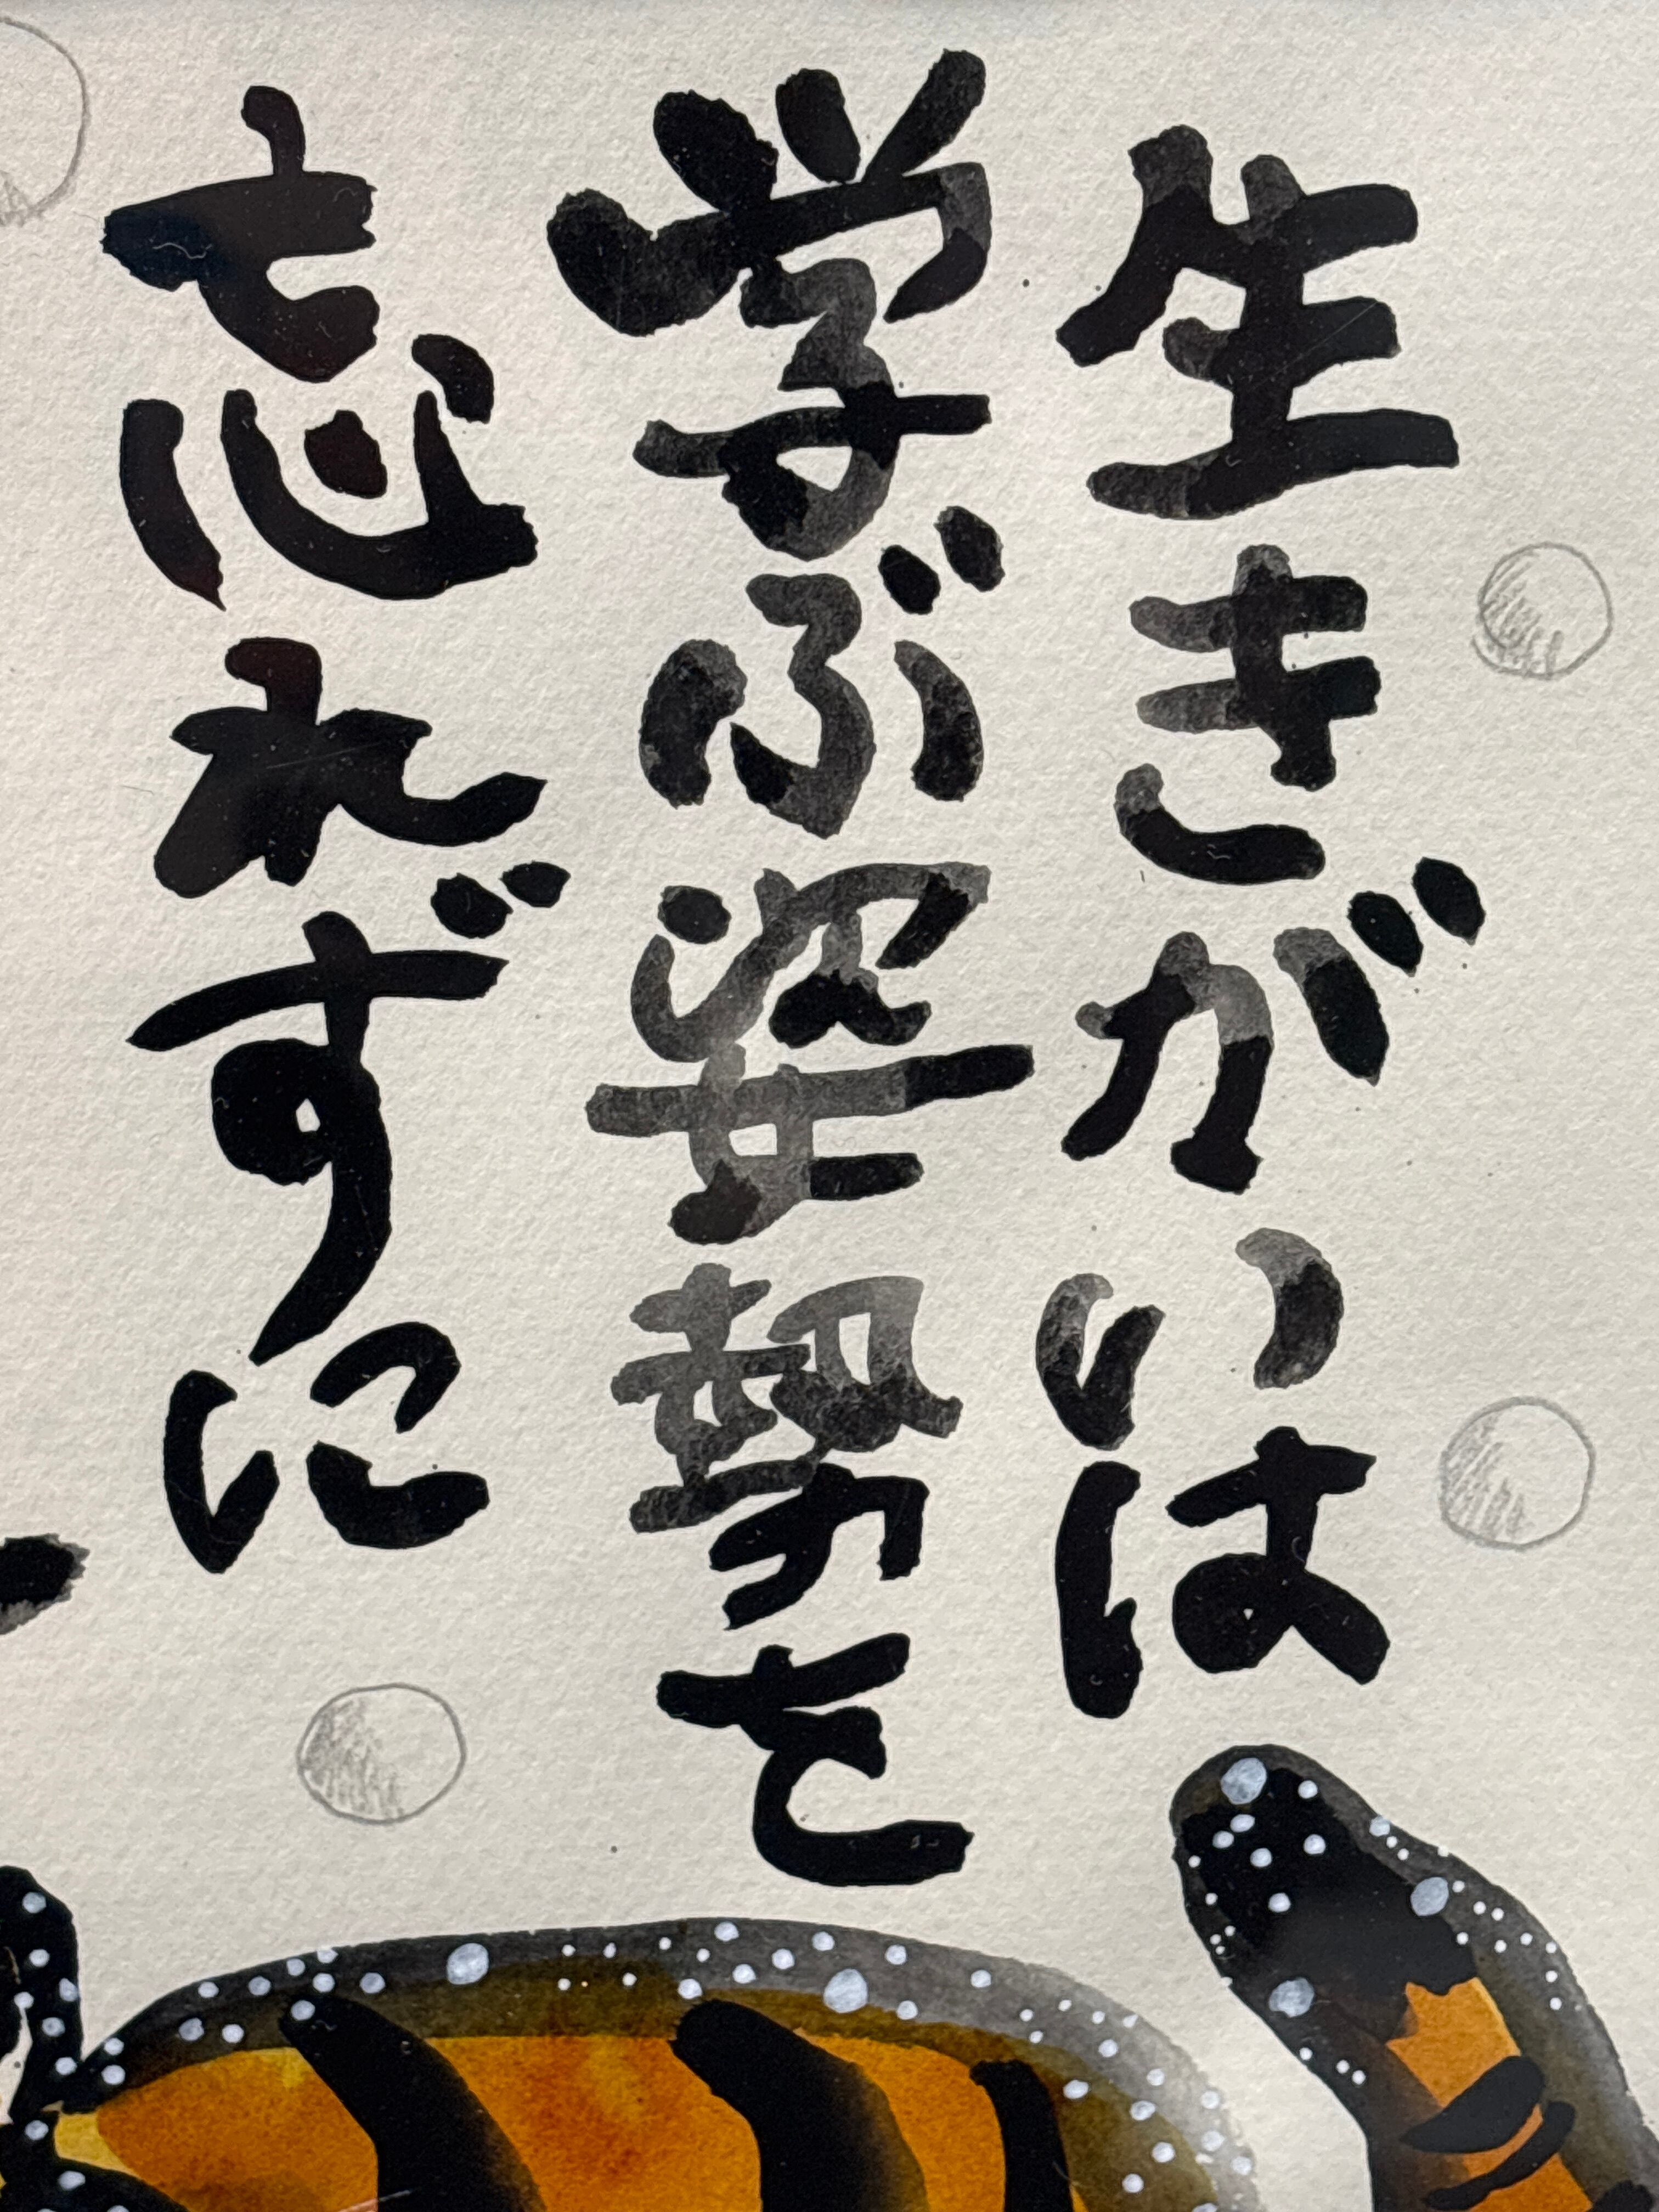 生きがいは
学ぶ姿勢を
忘れずに